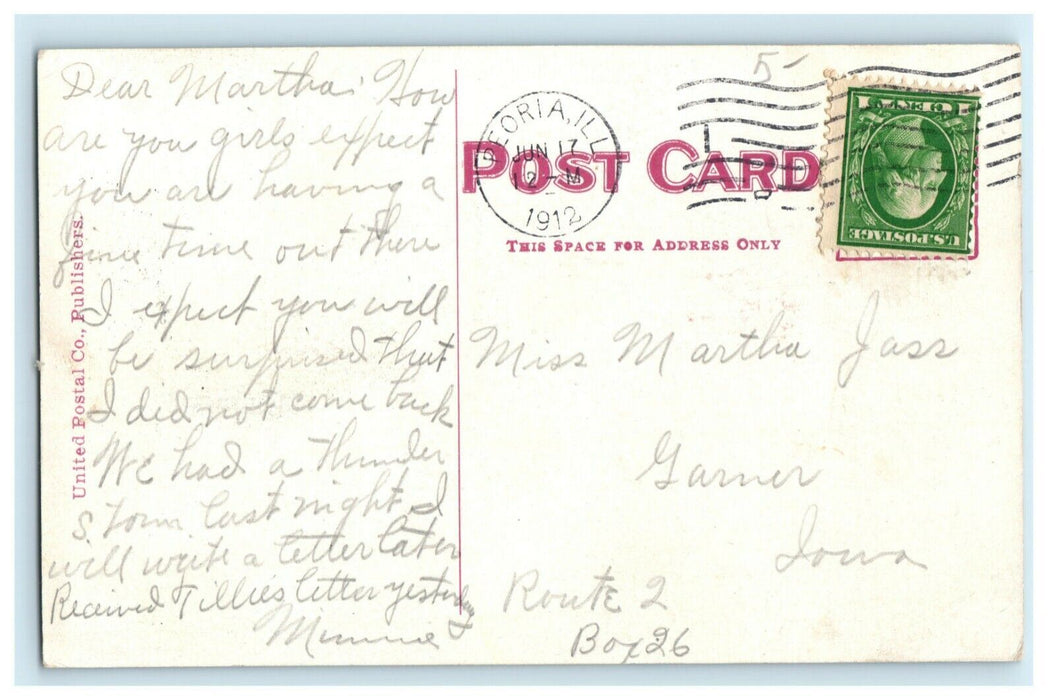 Dear Martha: How
are you girls expect
you are having a
fine time out there
I expect you will
be surprised that
I did not come back
We had a thunder
storm last night. I
will write a letter later
Received Tillies letter yesterday
Minnie
United Postal Co., Publishers.
5-
PEORIA, ILL
JUN 17
12-M
1912
POST CARD
THIS SPACE FOR ADDRESS ONLY
U.S. POSTAGE
1 CENT 1
Miss Martha Jass
Garner
Iowa
Route 2
Box 26